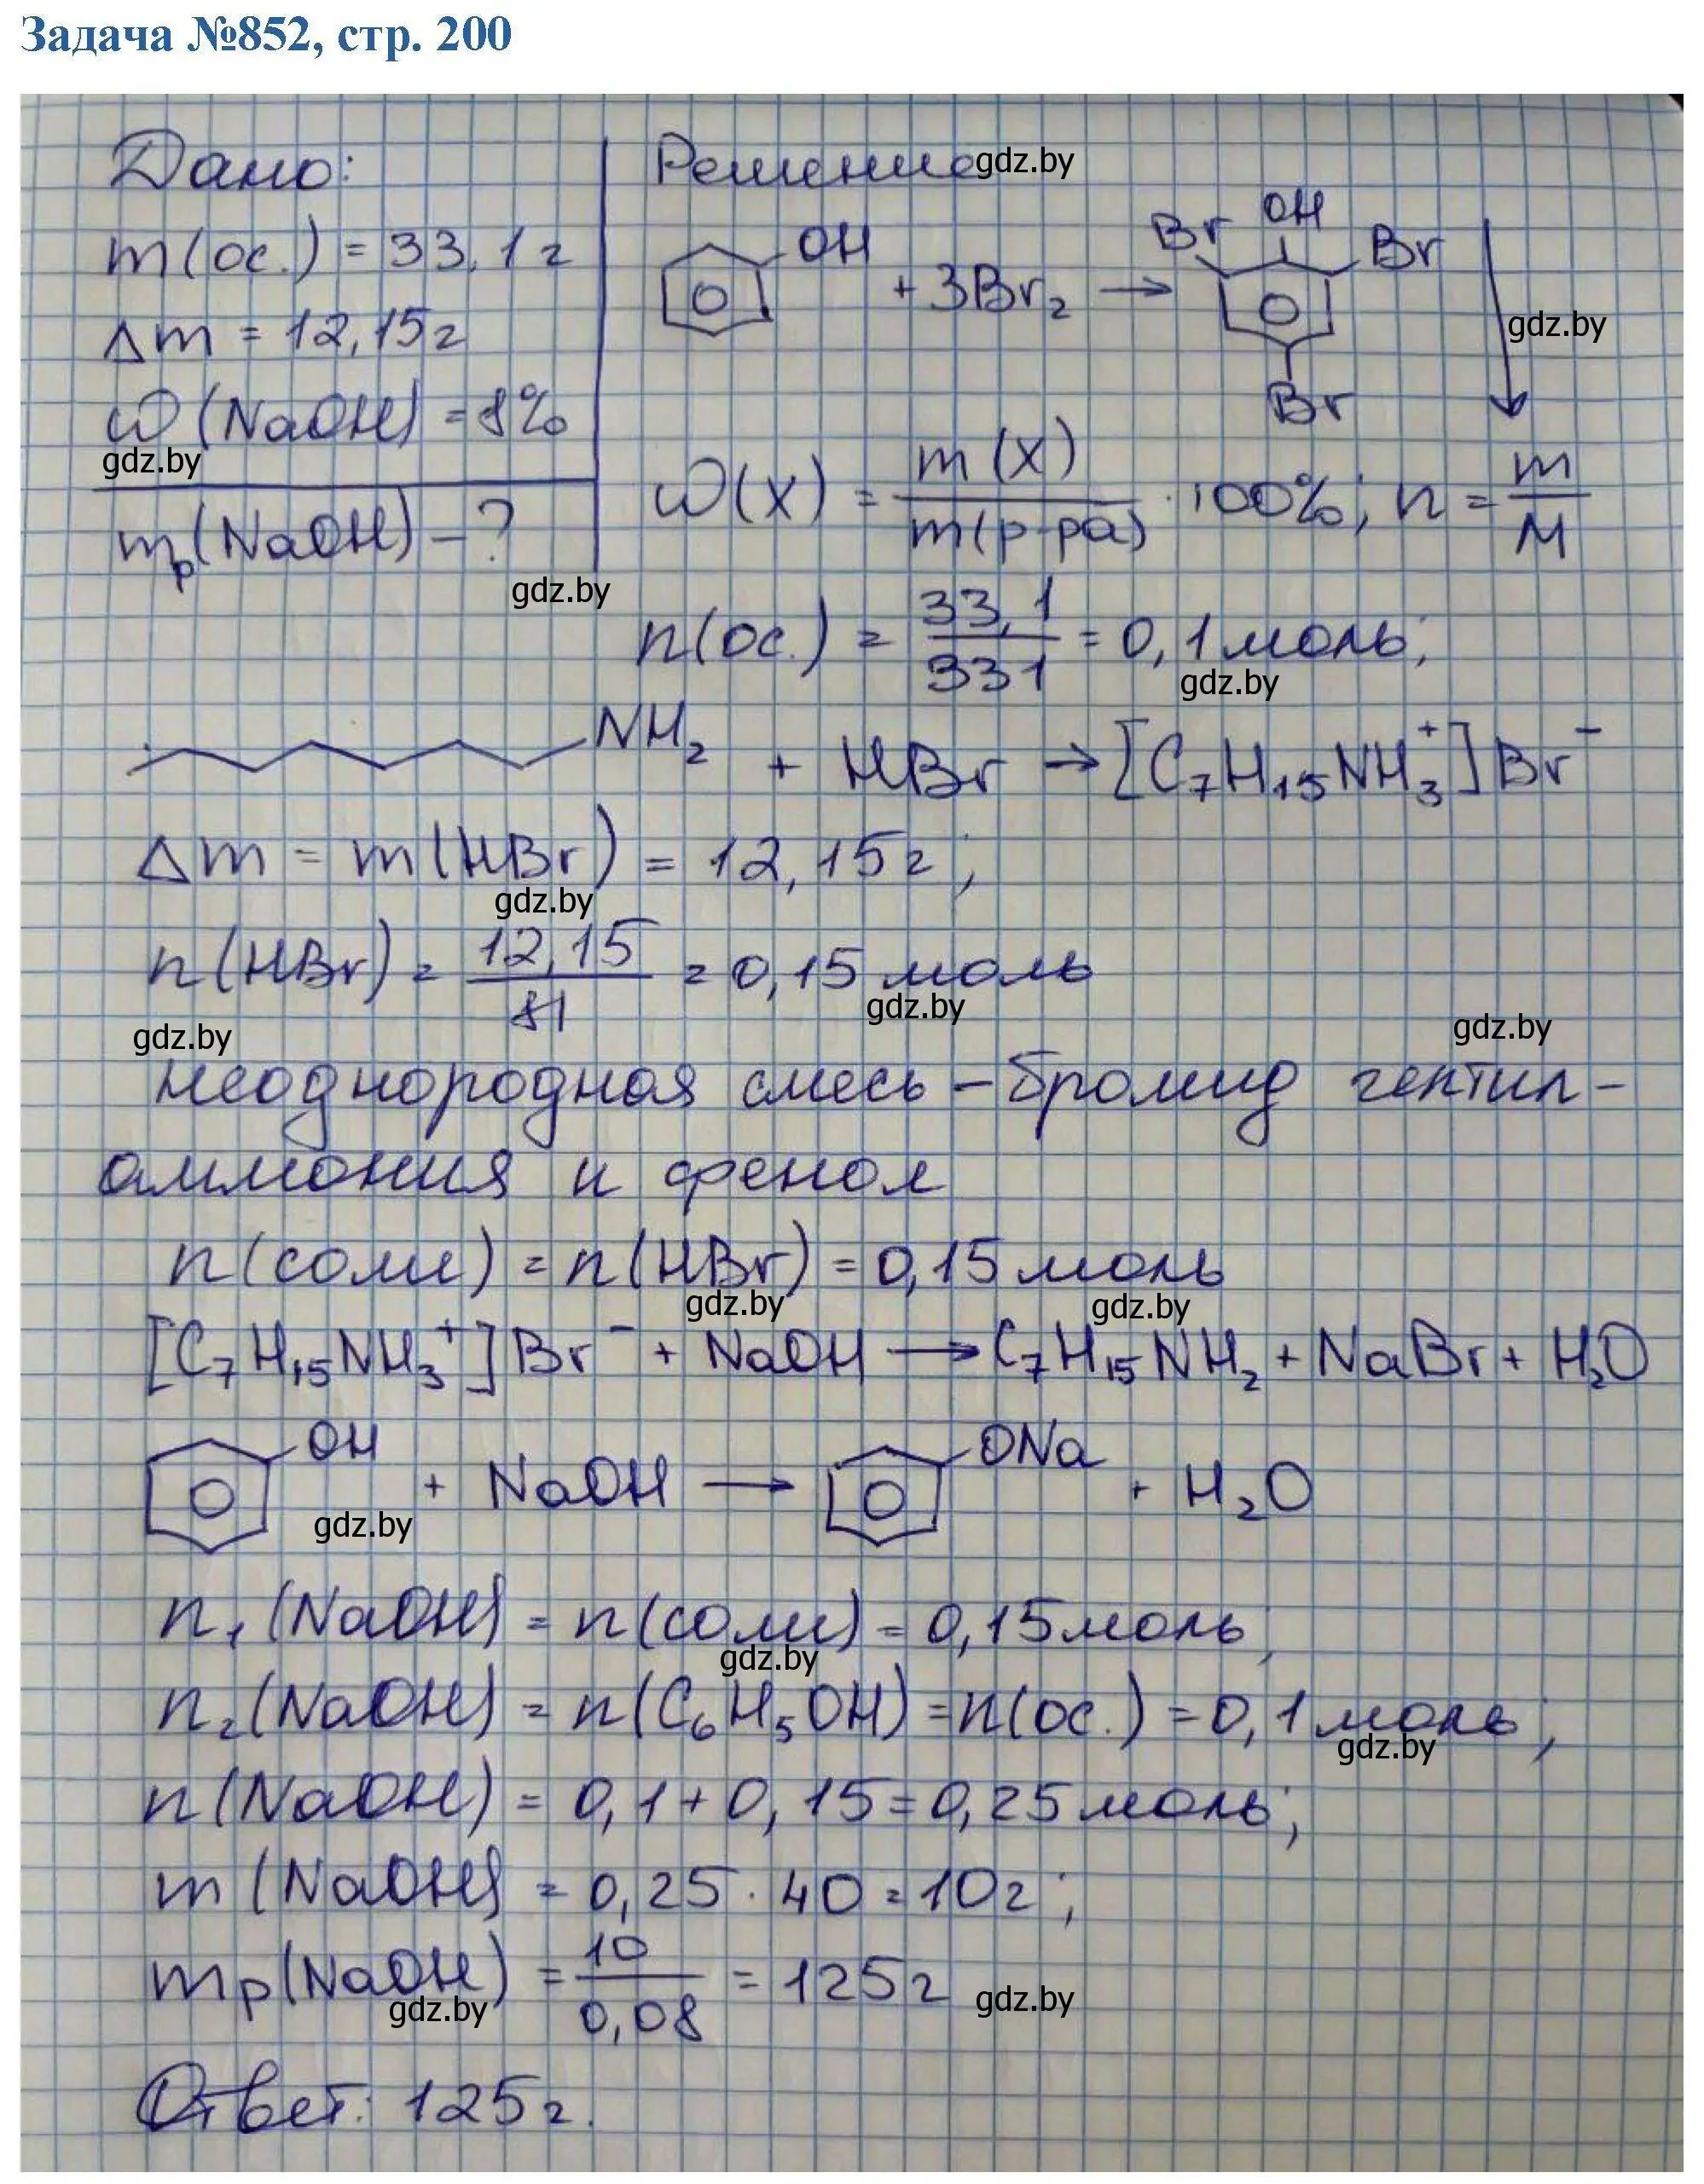 Задача №852, стр. 200
Дано:
m(ос.) = 33,1г
Δm = 12,15г
ω(NaOH) = 8%
gdz.by
mр(NaOH) - ?
gdz.by
Решение gdz.by
OH + 3Br₂ → Br OH Br Br ↓
gdz.by
ω(X) = m(X)/m(р-ра) · 100%; n = m/M
n(ос.) = 33,1/331 = 0,1 моль;
gdz.by
NH₂ + HBr → [C₇H₁₅NH₃⁺]Br⁻
Δm = m(HBr) = 12,15г;
gdz.by
n(HBr) = 12,15/81 = 0,15 моль
gdz.by
gdz.by gdz.by
неоднородная смесь - бромид гептил-
аммония и фенол
n(соли) = n(HBr) = 0,15 моль
gdz.by gdz.by
[C₇H₁₅NH₃⁺]Br⁻ + NaOH → C₇H₁₅NH₂ + NaBr + H₂O
OH + NaOH → ONa + H₂O
gdz.by
n₁(NaOH) = n(соли) = 0,15 моль;
gdz.by
n₂(NaOH) = n(C₆H₅OH) = n(ос.) = 0,1 моль;
gdz.by
n(NaOH) = 0,1 + 0,15 = 0,25 моль;
m(NaOH) = 0,25 · 40 = 10г;
mр(NaOH) = 10/0,08 = 125г gdz.by
gdz.by
Ответ: 125г.